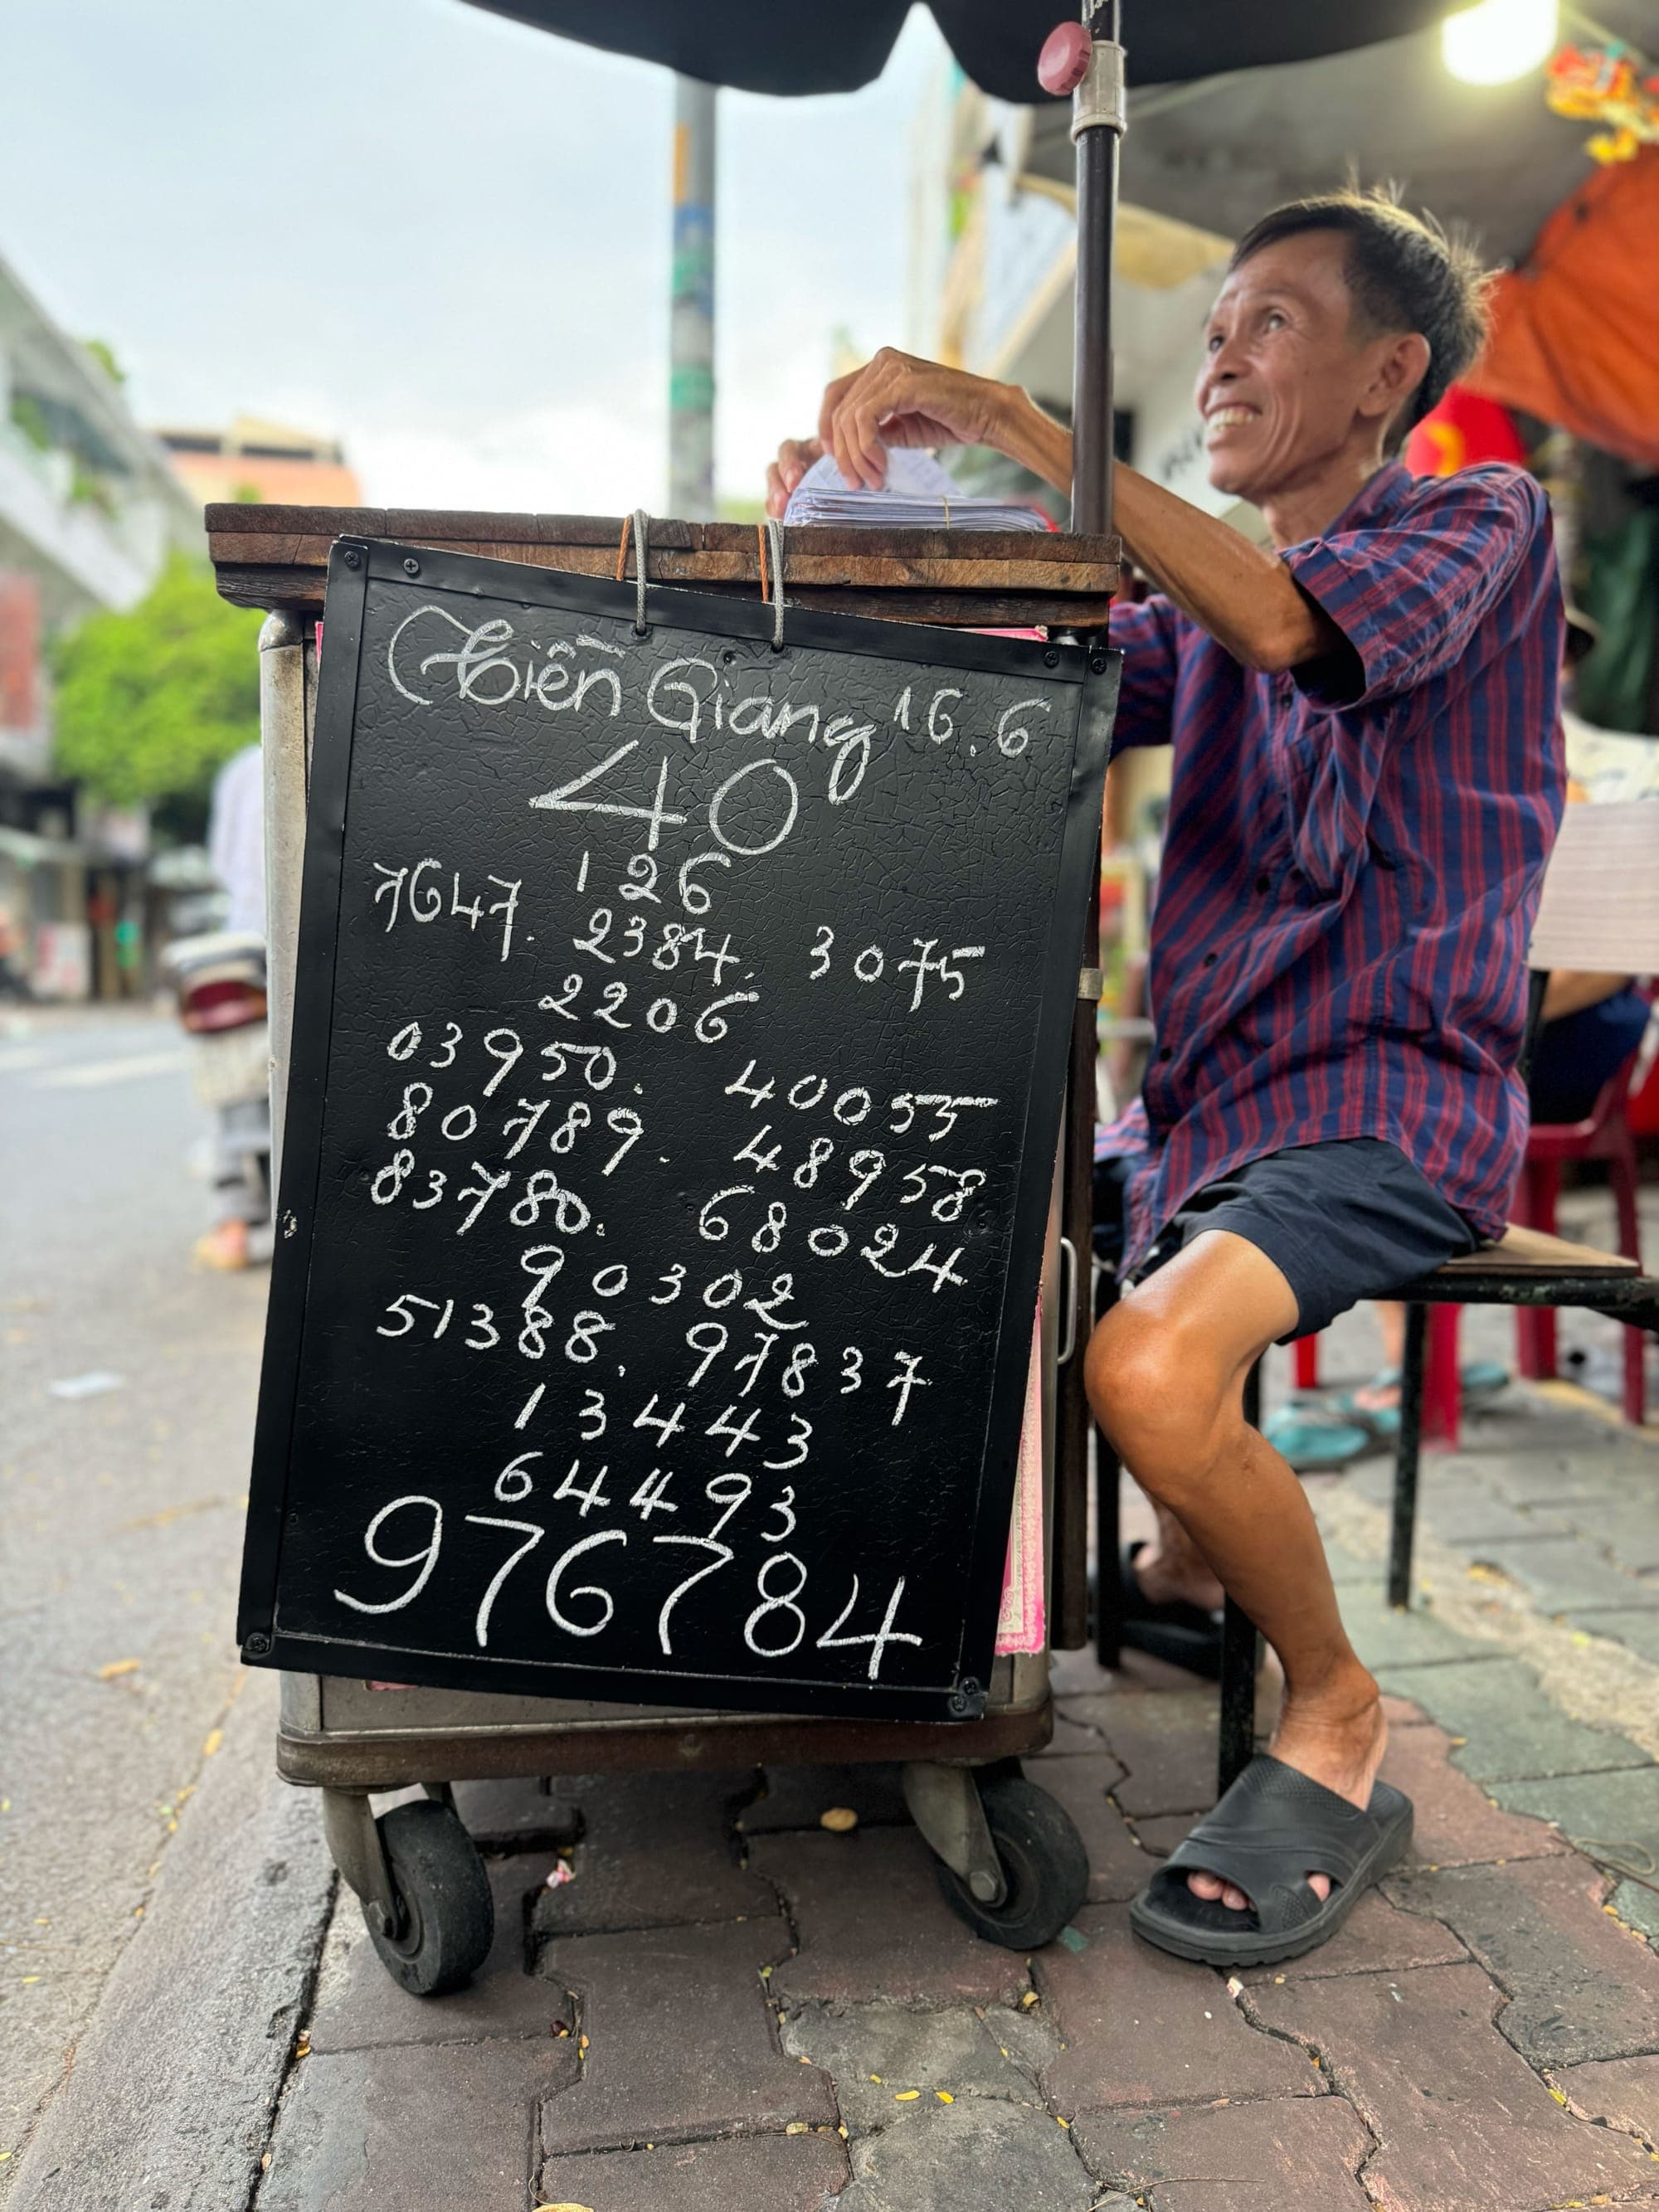 Tiền Giang 16.6
40
126
7647. 2384. 3075
2206
03950. 40055
80789. 48958
83780. 68024
90302
51388. 97837
13443
64493
976784